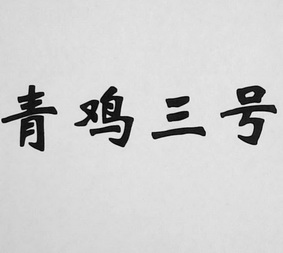 青鸡三号